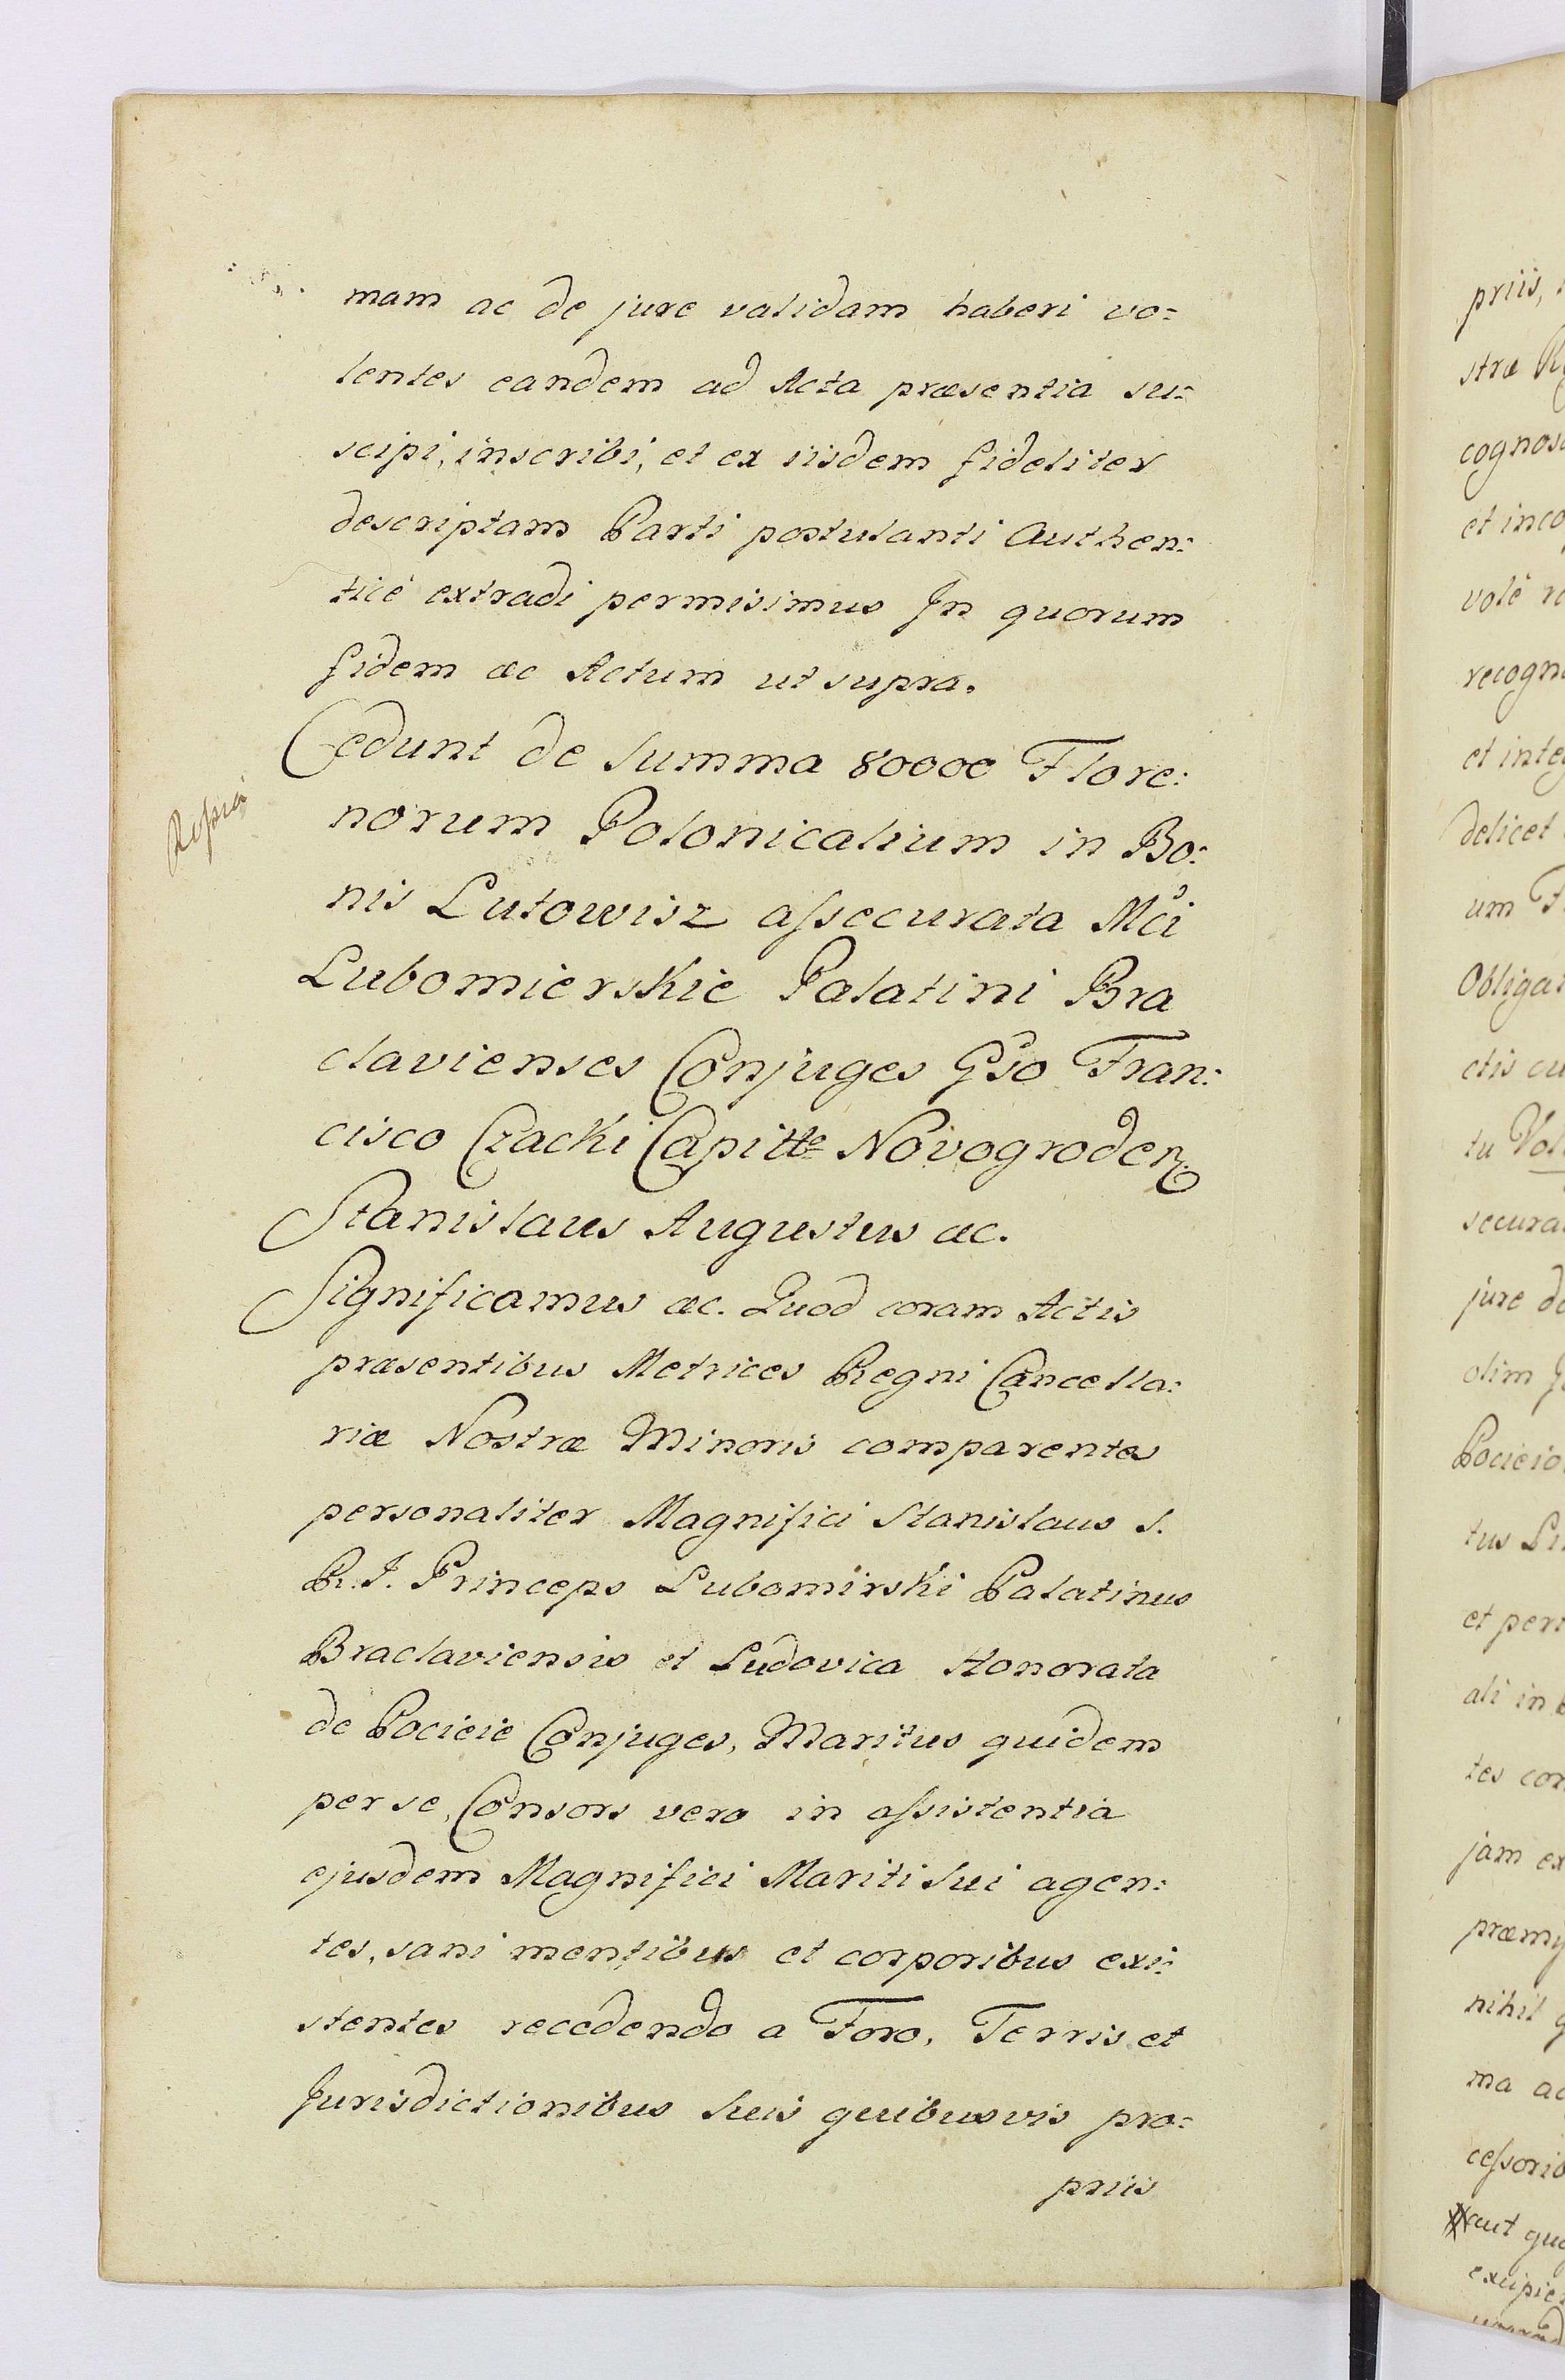 mam ac de jure validam haberi vo=
lentes eandem ad Acta præsentia su=
scipi, inscribi, et ex iisdem fideliter
descriptam Parti postulanti Authen:
ticè extradi permisimus In quorum
fidem &c Actum ut supra.
Cedunt de Summa 80000 Flore:
norum Polonicalium in Bo:
nis Lutowisz assecurata Mci
Lubomierskie Palatini Bra
clavienses Conjuges Gso Fran:
cisco Czacki Capitte Novogroden
Stanislaus Augustus &c.
Significamus &c. Quod coram Actis
præsentibus Metrices Regni Cancella:
riæ Nostræ Minoris comparentes
personaliter Magnifici Stanislaus S.
R. I. Princeps Lubomirski Palatinus
Braclaviensis et Ludovica Honorata
de Pocieie Conjuges, Maritus quidem
per se, Consors vero in assistentia
ejusdem Magnifici Mariti Sui agen:
tes, sani mentibus et corporibus exi:
stentes recedendo a Foro, Terris et
Jurisdictionibus Suis quibusvis pro=
priis
priis,
stræ
cognos
et inco
volè
recogn
et inte
delicet
um
Obligat
ctis cu
tu Vol
secura
jure de
olim
Pocieio
tus
et peri
ali in
tes con
jam ex
præmy
nihil
ma ac
cessorib
aut quo
excipie